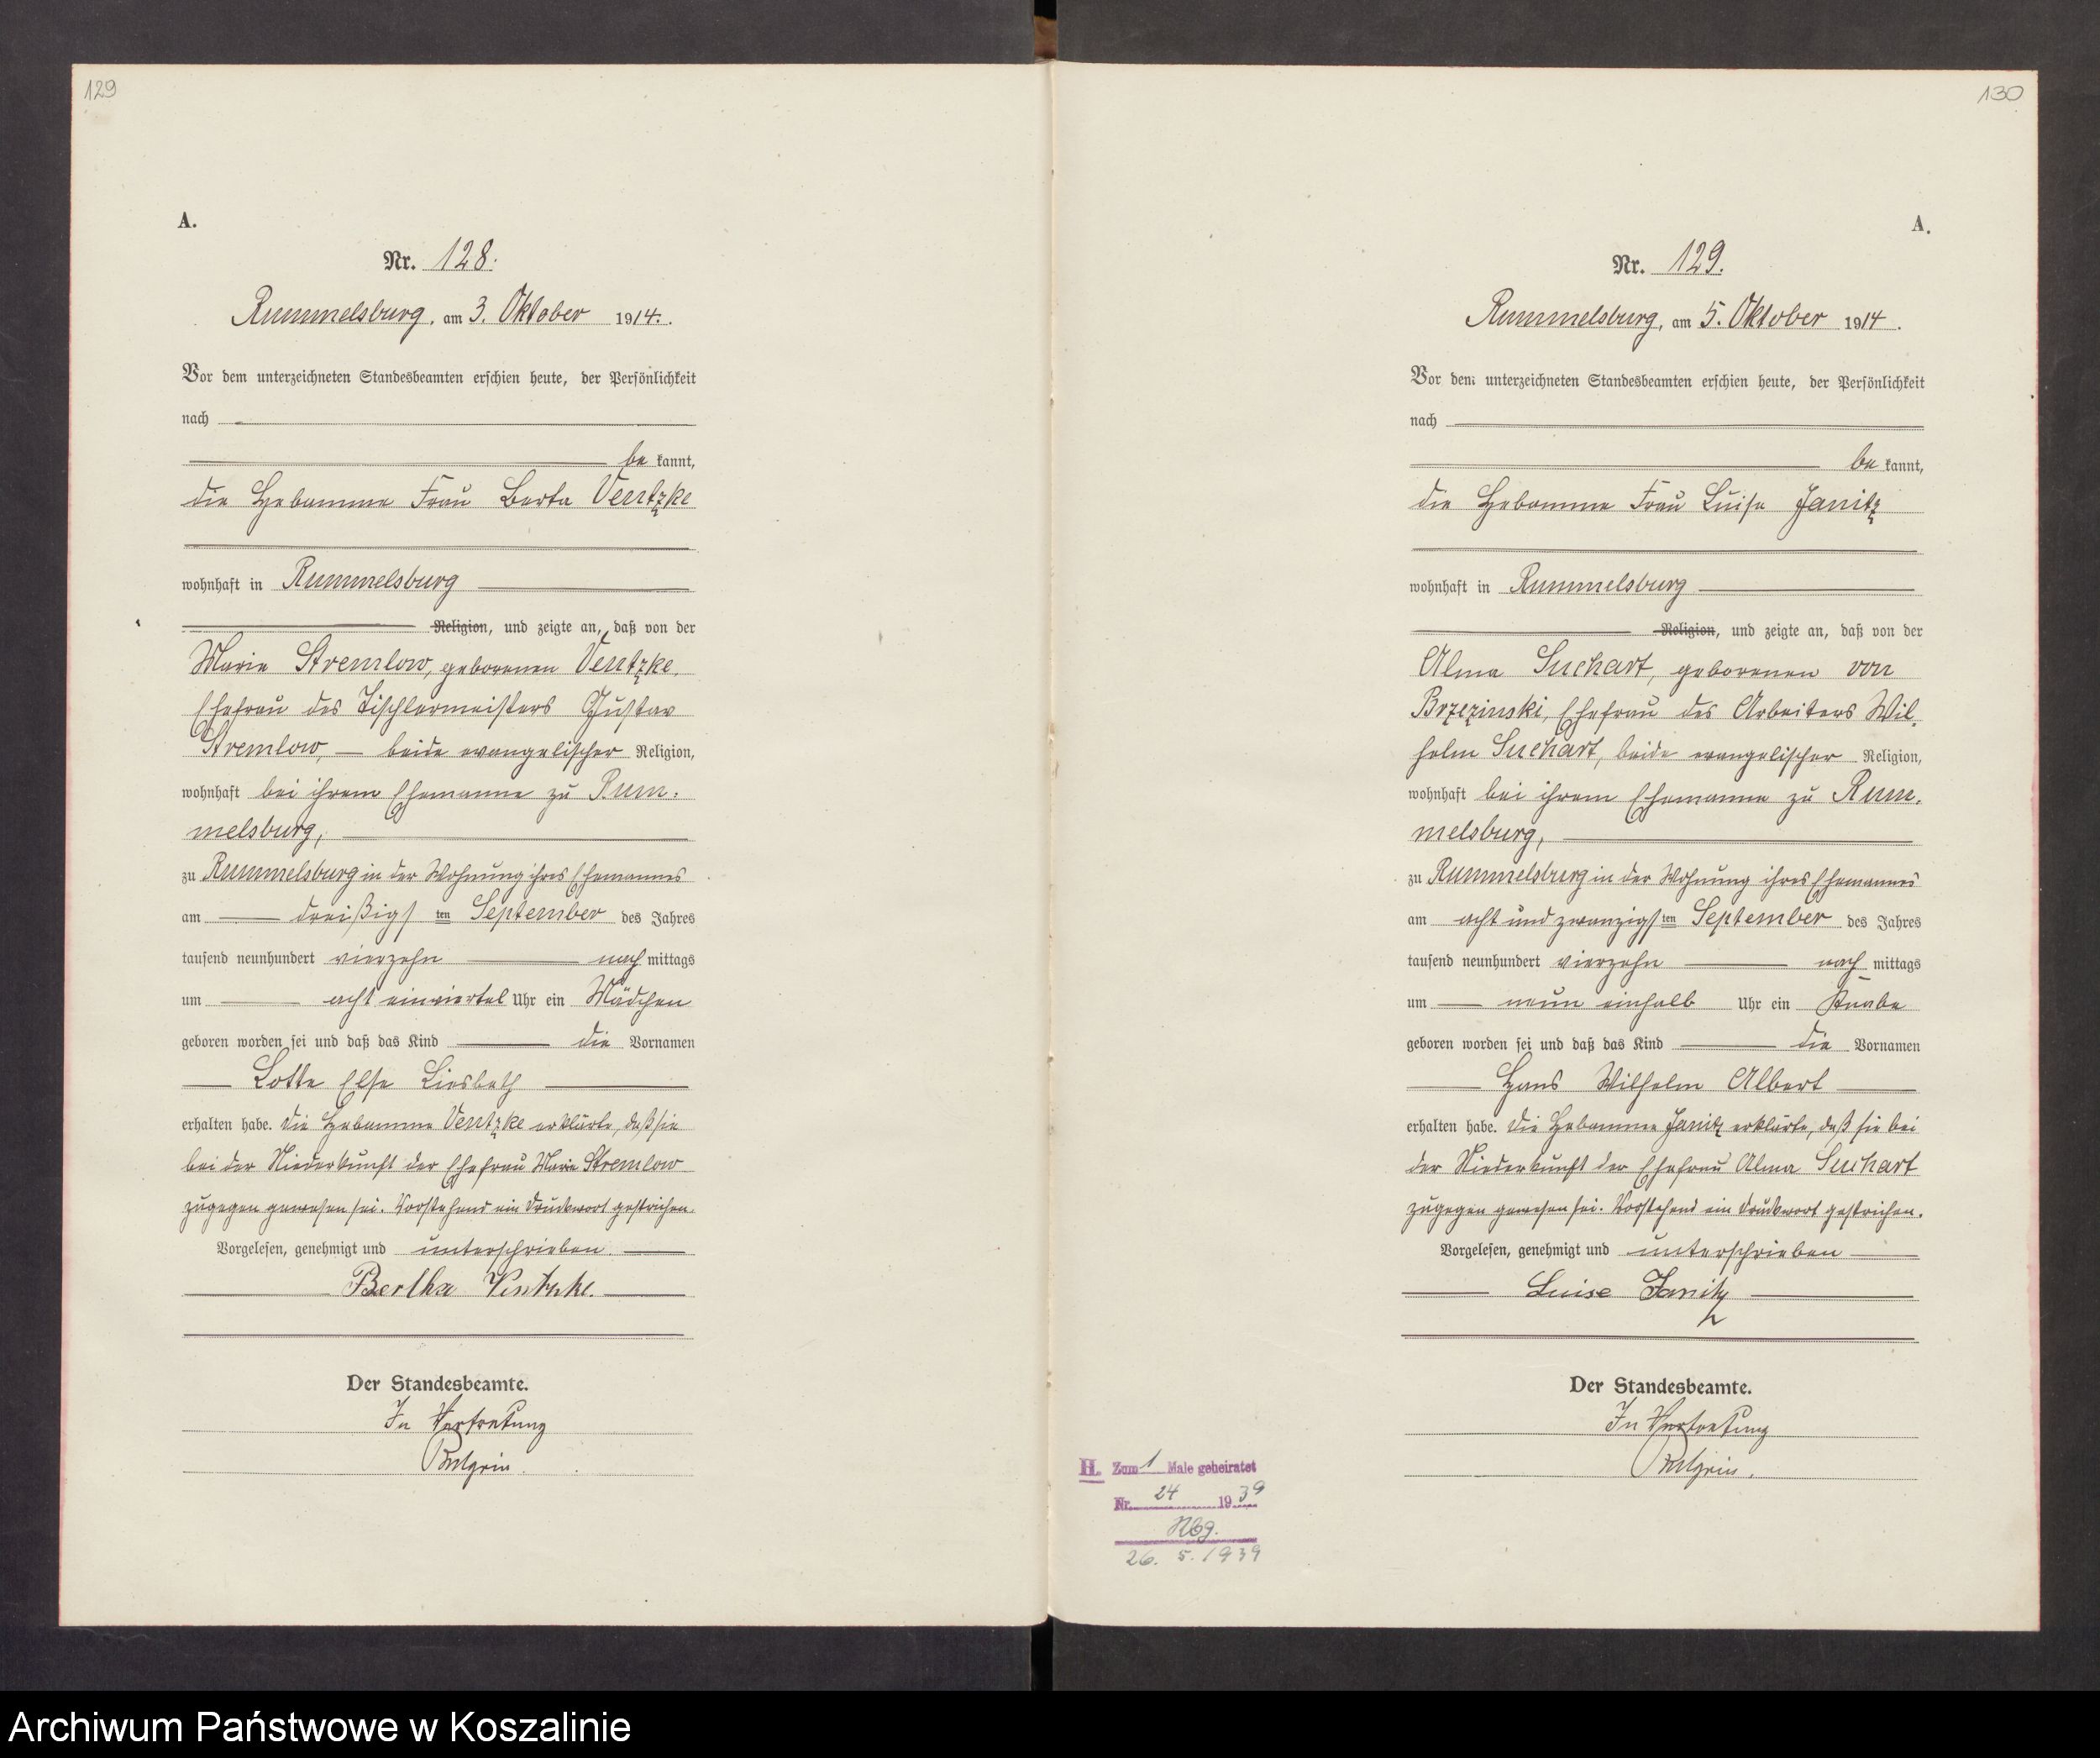 129
A.
Nr. 128.
Rummelsburg, am 3. Oktober 1914.
Vor dem unterzeichneten Standesbeamten erschien heute, der Persönlichkeit
nach
be kannt,
die Hebamme Frau Berta Ventzke
wohnhaft in Rummelsburg
Religion, und zeigte an, daß von der
Marie Stremlow, geborenen Ventzke,
Ehefrau des Tischlermeisters Gustav
Stremlow, beide evangelischer Religion,
wohnhaft bei ihrem Ehemanne zu Rum-
melsburg,
zu Rummelsburg in der Wohnung ihres Ehemannes
am dreißigs ten September des Jahres
tausend neunhundert vierzehn nach mittags
um acht einviertel Uhr ein Mädchen
geboren worden sei und daß das Kind die Vornamen
Lotte Else Liesbeth
erhalten habe. Die Hebamme Ventzke erklärte, daß sie
bei der Niederkunft der Ehefrau Marie Stremlow
zugegen gewesen sei. Vorstehend ein Druckwort gestrichen.
Vorgelesen, genehmigt und unterschrieben.
Bertha Ventzke.
Der Standesbeamte.
In Vertretung
130
A.
Nr. 129.
Rummelsburg, am 5. Oktober 1914.
Vor dem unterzeichneten Standesbeamten erschien heute, der Persönlichkeit
nach
be kannt,
die Hebamme Frau Luise Janitz
wohnhaft in Rummelsburg
Religion, und zeigte an, daß von der
Alma Suchart, geborenen von
Brzezinski, Ehefrau des Arbeiters Wil-
helm Suchart, beide evangelischer Religion,
wohnhaft bei ihrem Ehemanne zu Rum-
melsburg,
zu Rummelsburg in der Wohnung ihres Ehemannes
am acht und zwanzigs ten September des Jahres
tausend neunhundert vierzehn nach mittags
um neun einhalb Uhr ein Knabe
geboren worden sei und daß das Kind die Vornamen
Hans Wilhelm Albert
erhalten habe. Die Hebamme Janitz erklärte, daß sie bei
der Niederkunft der Ehefrau Alma Suchart
zugegen gewesen sei. Vorstehend ein Druckwort gestrichen.
Vorgelesen, genehmigt und unterschrieben
Luise Janitz
Der Standesbeamte.
In Vertretung
H. Zum 1 Male geheiratet
Nr. 24 1939
Rbg.
26. 5. 1939
Archiwum Państwowe w Koszalinie